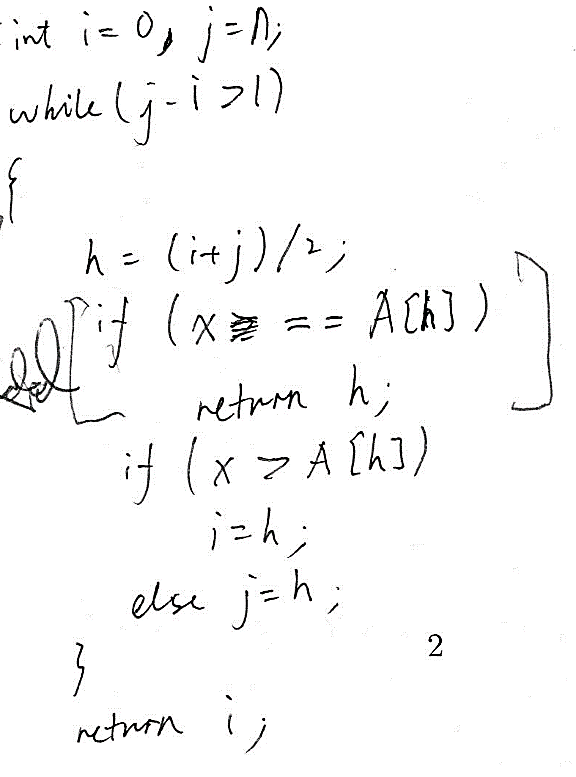 int i = 0, j = n;
while (j - i > 1)
{
h = (i+j)/2;
[if (x == A[h])
return h;]
if (x > A[h])
i = h;
else j = h;
2
}
return i;